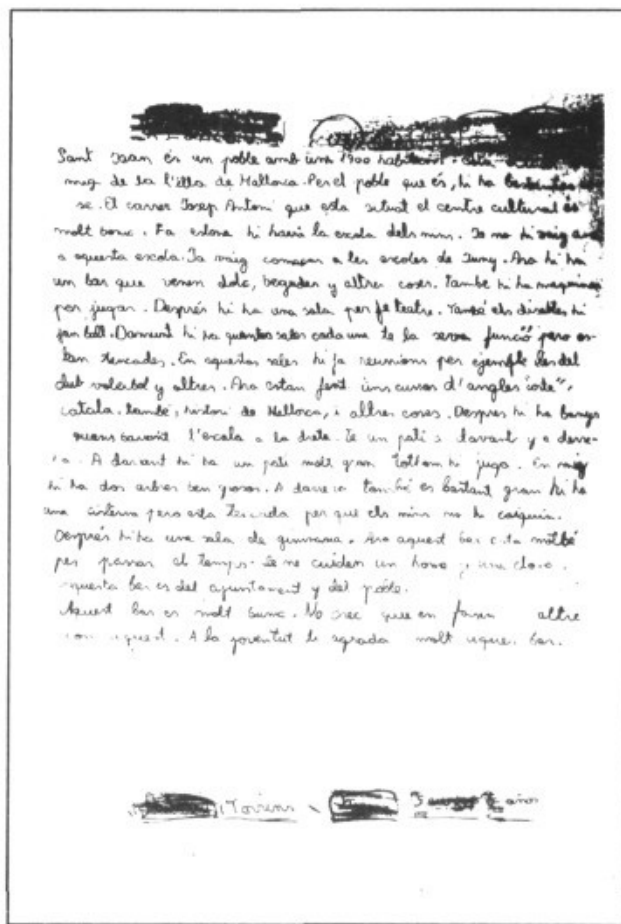 Sant Joan és un poble amb uns 1900 habitants. està
mig de la l'illa de Mallorca. Per el poble que és, hi ha bastantes
se. El carrer Josep Antoni que esta situat el centre cultural és
molt bonic. Fa estona hi havia la escola dels nins. Jo no hi vaig
a aquesta escola. Jo vaig començar a les escoles de Juny. Ara hi ha
un bar que venen dolç, begudes y altres coses. També hi ha maquines
per jugar. Després hi ha una sala per fe teatre. També els disabtes hi
fan ball. Damunt hi ha quantes sales cada una te la seva funció pero es-
tan tencades. En aquestas sales hi fa reunions per ejemple les del
club voleibol y altres. Ara estan fent uns cursos d'angles "code",
català. també, histori de Mallorca, i altres coses. Despres hi ha banys
l'escala a la dreta. Te un pati a davant y a derre-
ra. A davant hi ha un pati molt gran tothom hi juga. En mig
hi ha dos arbres ben grosos. A darrera també es bastant gran hi ha
una cisterna pero esta tencada per que els nins no hi caiguin.
Després hi ha una sala de gimnasia. Ara aquest bar esta molt bé
per passar el temps. Se ne cuiden un home y una dona.
aquesta bar es del ajuntament y del poble.
Aquest bar es molt bonic. No crec que en faixin altre
com aquest. A la joventut li agrada molt aquest bar.
Torrens años